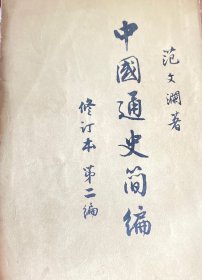 范文瀾著
中國通史简編
修订本 第二编